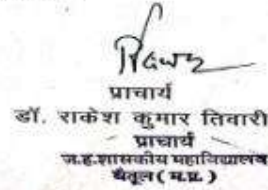 प्राचार्य
डॉ. राकेश कुमार तिवारी
प्राचार्य
ज.ह.शासकीय महाविद्यालय
बैतूल (म.प्र.)